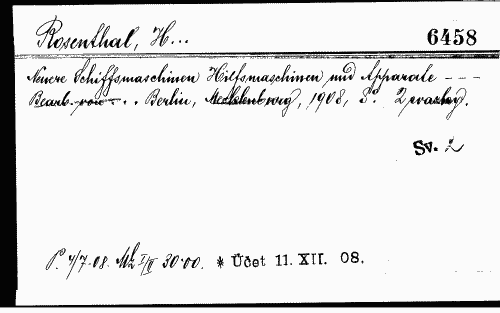 Rosenthal, H... 6458
Neuere Schiffsmaschinen Hilfsmaschinen und Apparate - - -
Bearb. von . . . Berlin, Mecklenburg, 1908, 8°. 2 svazky.
Sv. 2
P. 4/7.08. Mk I/II 30·00. * Účet 11. XII. 08.